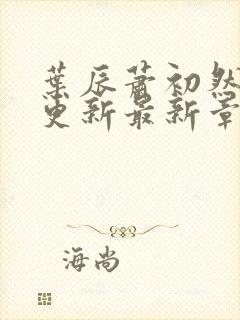 葉辰蕭初然
更新最新章
海尚